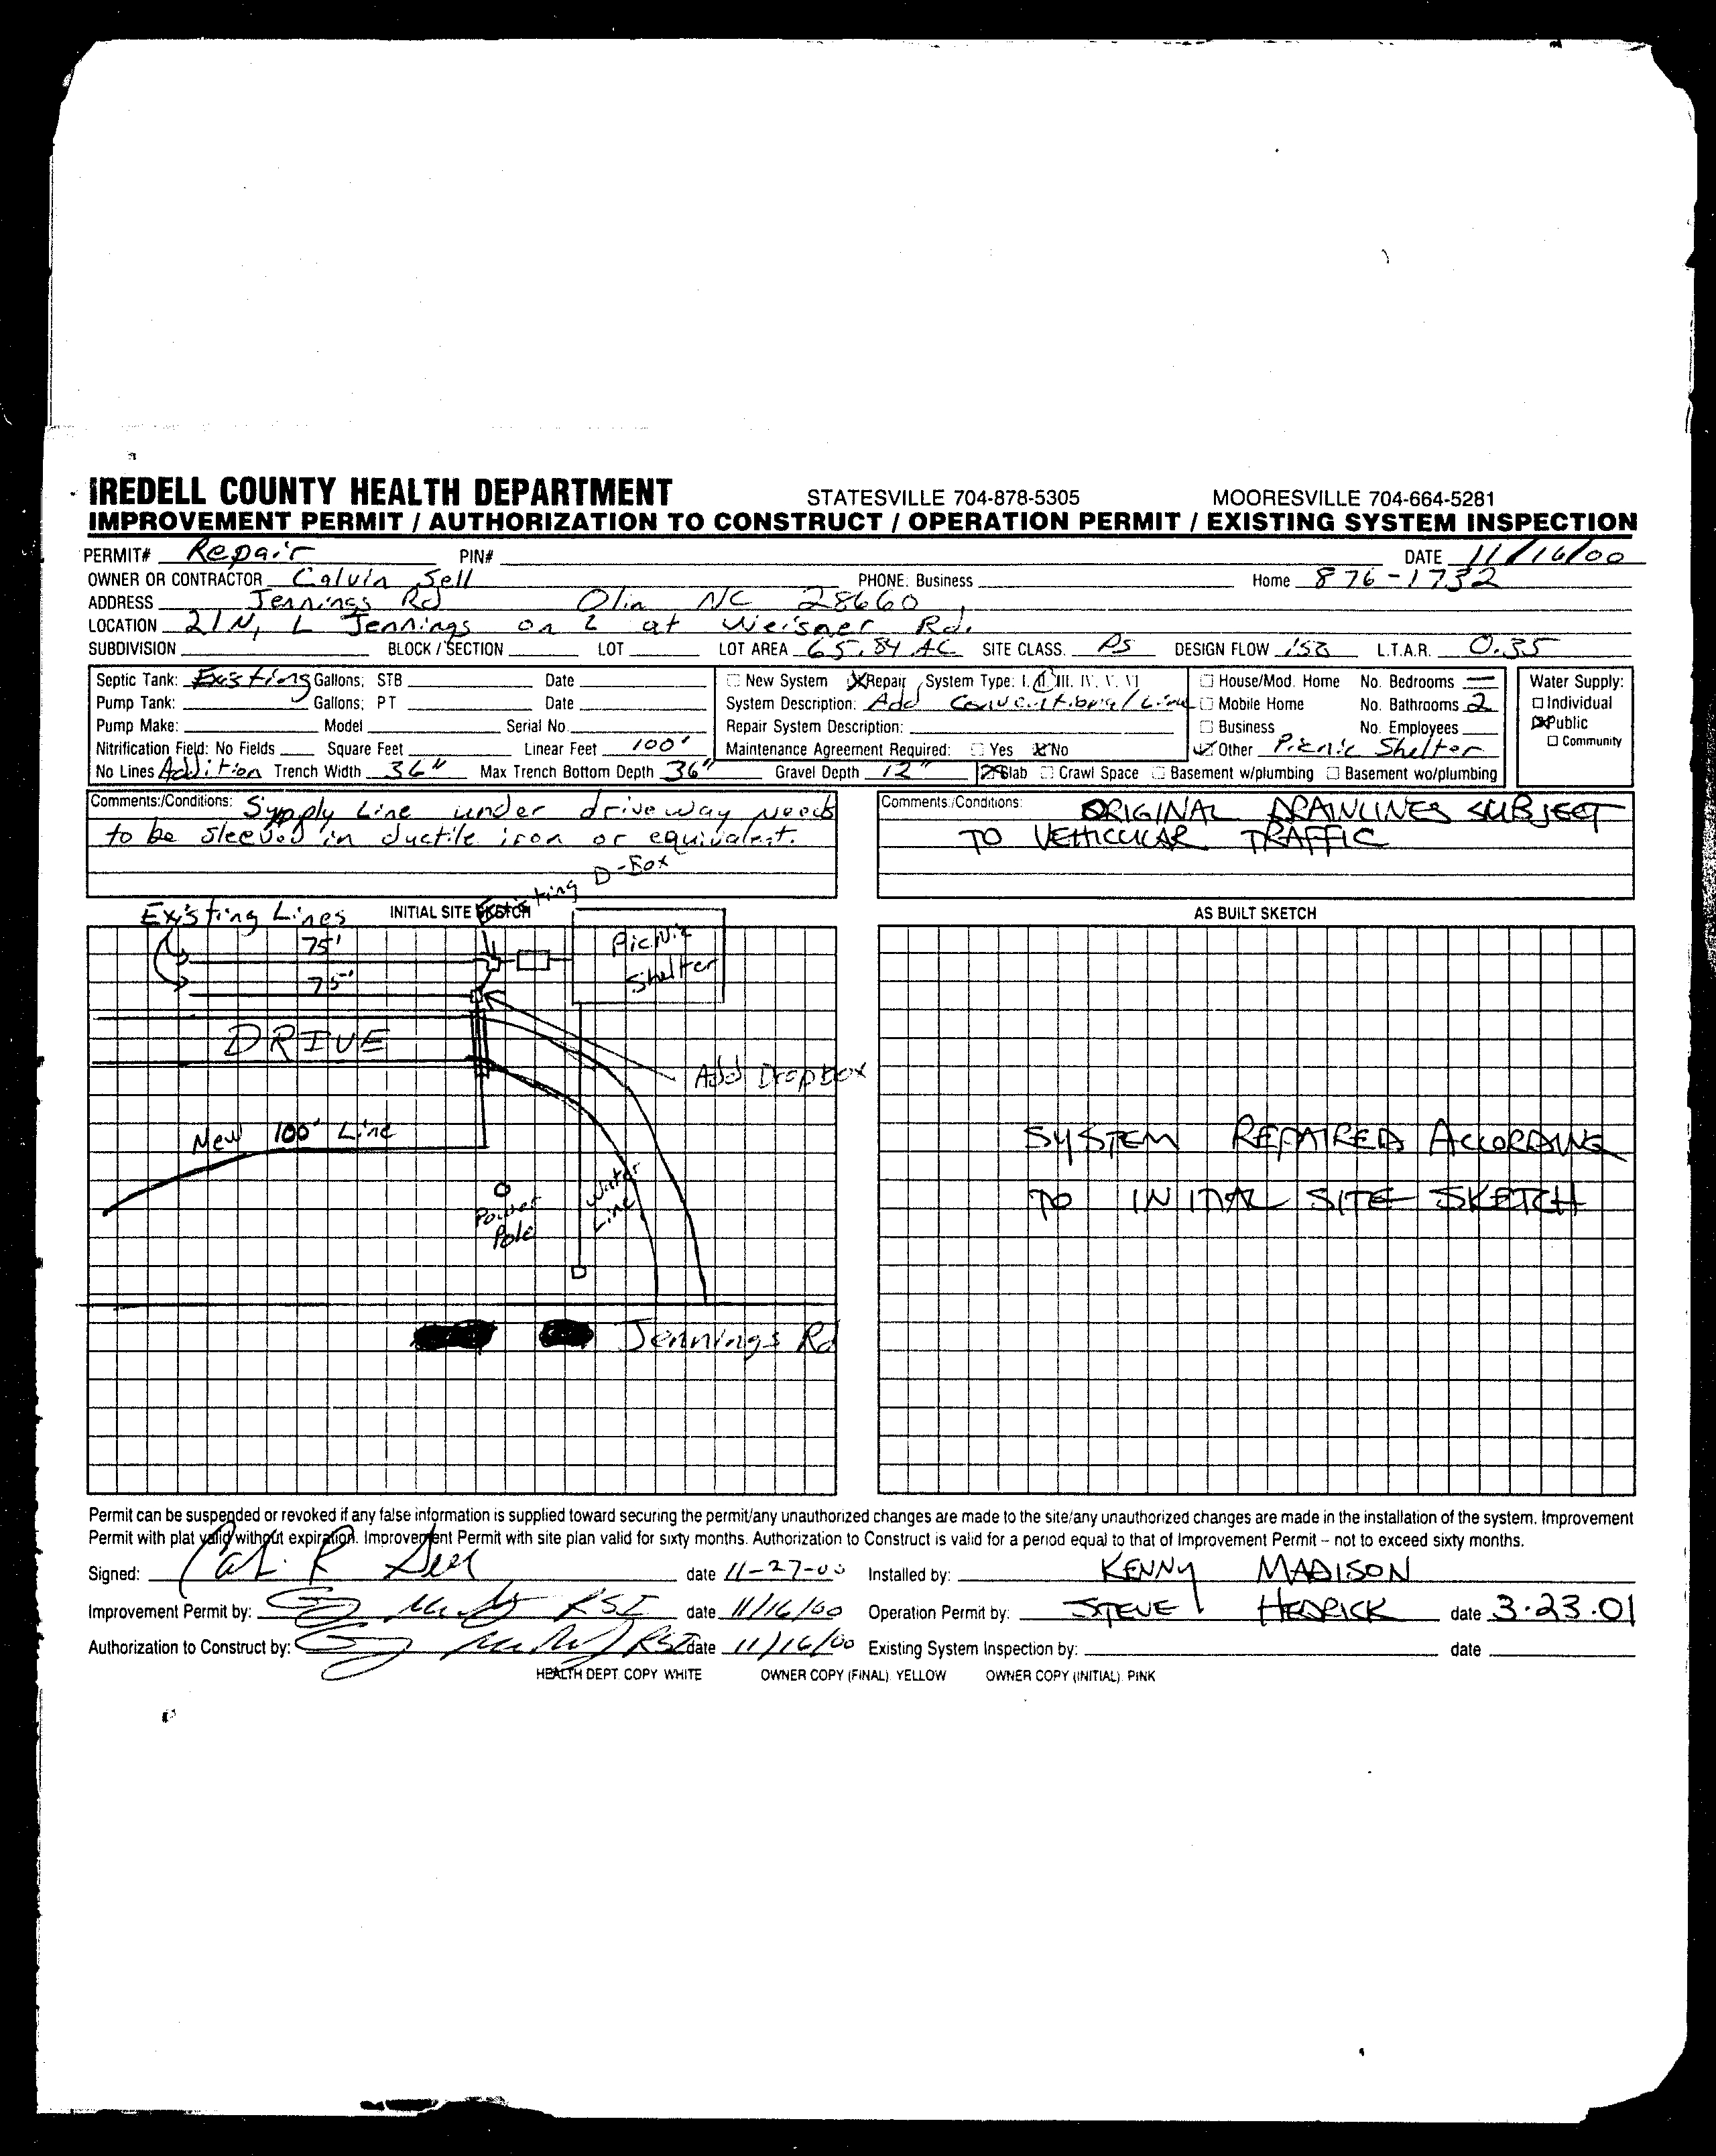 IREDELL COUNTY HEALTH DEPARTMENT STATESVILLE 704-878-5305 MOORESVILLE 704-664-5281
IMPROVEMENT PERMIT / AUTHORIZATION TO CONSTRUCT / OPERATION PERMIT / EXISTING SYSTEM INSPECTION
PERMIT# Repair PIN# DATE 11/16/00
OWNER OR CONTRACTOR Calvin Sell PHONE: Business Home 876-1732
ADDRESS Jennings Rd Olin NC 28660
LOCATION 21N, L Jennings on L at Weisner Rd.
SUBDIVISION BLOCK / SECTION LOT LOT AREA 65.84 AC SITE CLASS. PS DESIGN FLOW L.T.A.R. 0.35
Septic Tank: Existing Gallons; STB Date
Pump Tank: Gallons; PT Date
Pump Make: Model Serial No.
Nitrification Field: No Fields Square Feet Linear Feet 100'
No Lines Addition Trench Width 36" Max Trench Bottom Depth 36" Gravel Depth 12"
New System Repair System Type: I, II, III, IV, V, VI
System Description: Add Conventional Line
Repair System Description:
Maintenance Agreement Required: Yes No
House/Mod. Home No. Bedrooms —
Mobile Home No. Bathrooms 2
Business No. Employees
Other Picnic Shelter
Slab Crawl Space Basement w/plumbing Basement wo/plumbing
Water Supply:
Individual
Public
Community
Comments:/Conditions: Supply Line under driveway needs
to be sleeved in ductile iron or equivalent.
Comments:/Conditions: ORIGINAL DRAINLINES SUBJECT
TO VEHICULAR TRAFFIC
INITIAL SITE SKETCH
Existing D-Box
Existing Lines
75'
75'
Picnic
Shelter
DRIVE
Add Dropbox
New 100' Line
Power
Pole
Water
Line
Jennings Rd
AS BUILT SKETCH
SYSTEM REPAIRED ACCORDING
TO INITIAL SITE SKETCH
Permit can be suspended or revoked if any false information is supplied toward securing the permit/any unauthorized changes are made to the site/any unauthorized changes are made in the installation of the system. Improvement
Permit with plat valid without expiration. Improvement Permit with site plan valid for sixty months. Authorization to Construct is valid for a period equal to that of Improvement Permit – not to exceed sixty months.
Signed: date 11-27-00 Installed by: KENNY MADISON
Improvement Permit by: RSI date 11/16/00 Operation Permit by: STEVE HEDRICK date 3.23.01
Authorization to Construct by: RSI date 11/16/00 Existing System Inspection by: date
HEALTH DEPT COPY WHITE OWNER COPY (FINAL) YELLOW OWNER COPY (INITIAL) PINK